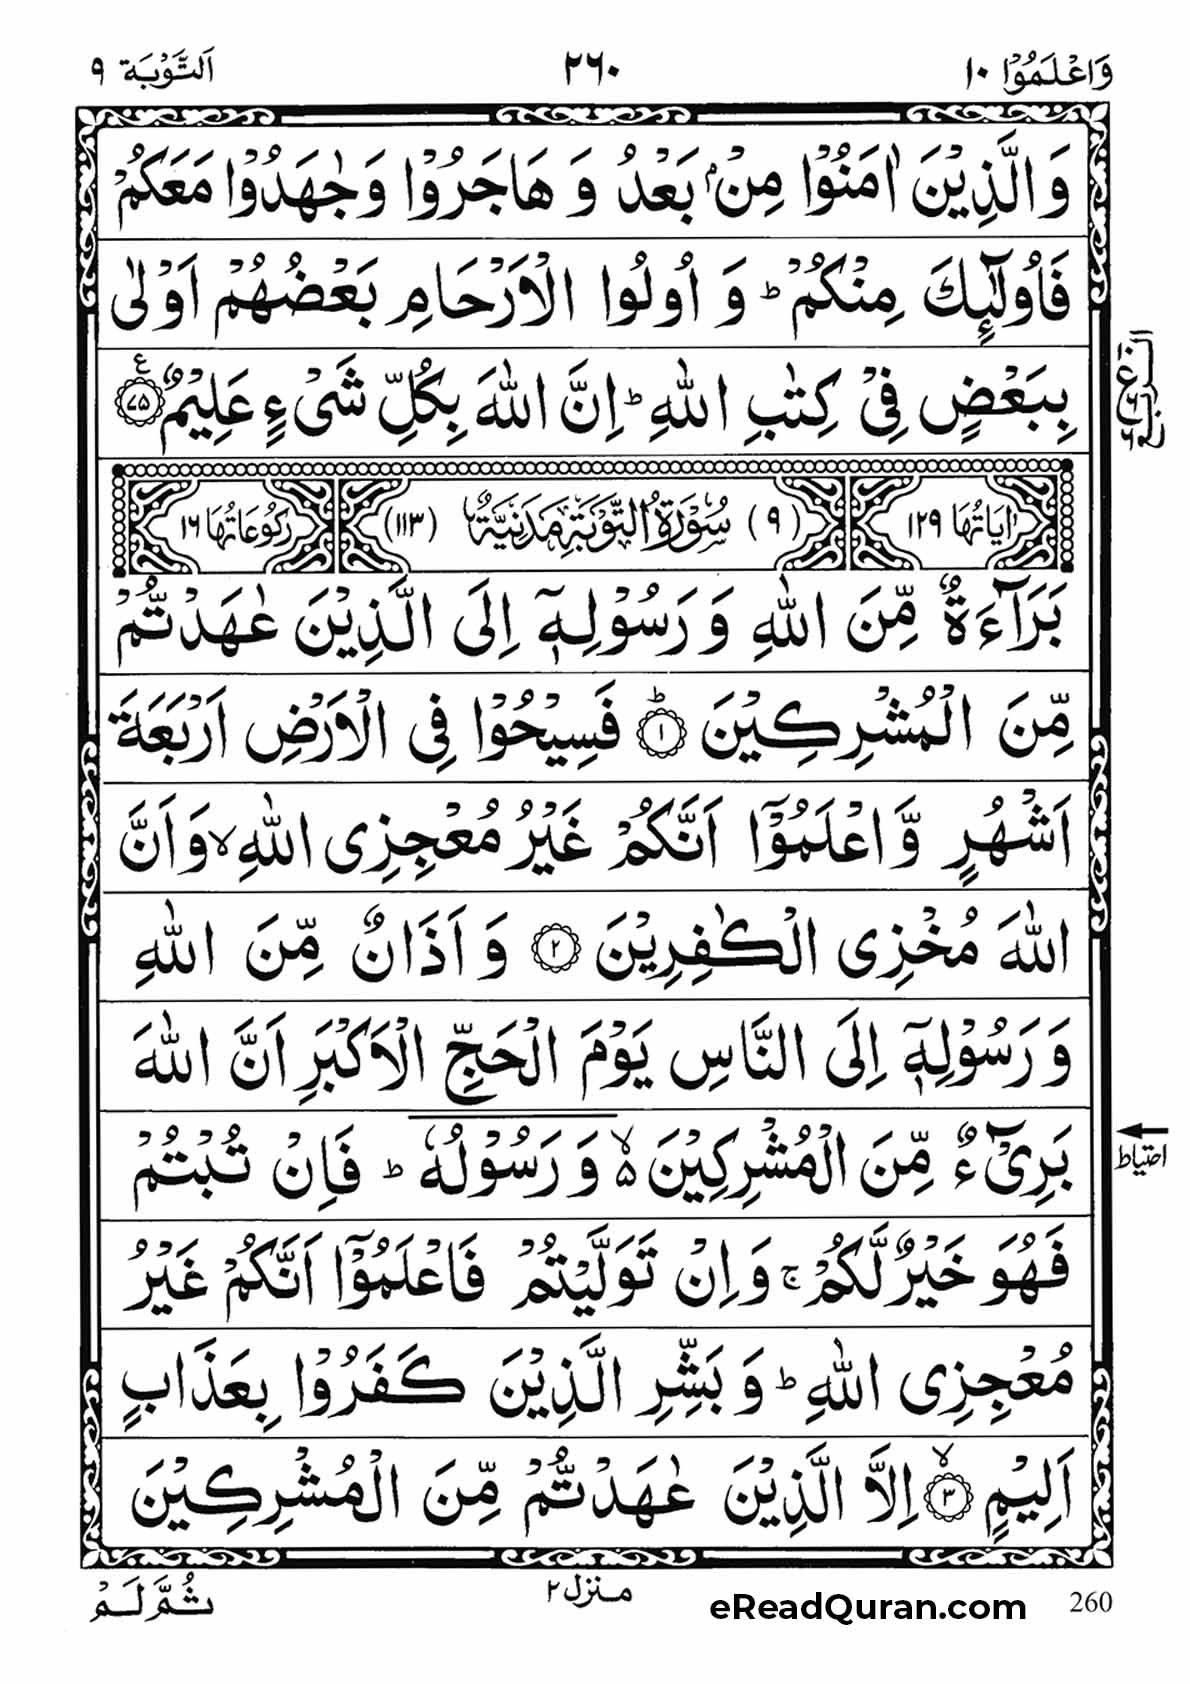 وَاعْلَمُوْۤا ١٠ ٢٦٠ اَلتَّوْبَة ٩
وَالَّذِيْنَ اٰمَنُوْا مِنْۢ بَعْدُ وَ هَاجَرُوْا وَجٰهَدُوْا مَعَكُمْ
فَاُولٰٓئِكَ مِنْكُمْ ؕ وَ اُولُوا الْاَرْحَامِ بَعْضُهُمْ اَوْلٰى
بِبَعْضٍ فِيْ كِتٰبِ اللّٰهِ ؕ اِنَّ اللّٰهَ بِكُلِّ شَيْءٍ عَلِيْمٌ ﴿۷۵﴾ ع
اٰيَاتُهَا ١٢٩ (٩) سُوْرَةُ التَّوْبَةِ مَدَنِيَّةٌ (١١٣) رُكُوْعَاتُهَا ١٦
بَرَآءَةٌ مِّنَ اللّٰهِ وَ رَسُوْلِهٖۤ اِلَى الَّذِيْنَ عٰهَدْتُّمْ
مِّنَ الْمُشْرِكِيْنَ ؕ ﴿١﴾ فَسِيْحُوْا فِي الْاَرْضِ اَرْبَعَةَ
اَشْهُرٍ وَّاعْلَمُوْۤا اَنَّكُمْ غَيْرُ مُعْجِزِي اللّٰهِ ۙ وَاَنَّ
اللّٰهَ مُخْزِي الْكٰفِرِيْنَ ﴿٢﴾ وَ اَذَانٌ مِّنَ اللّٰهِ
وَ رَسُوْلِهٖۤ اِلَى النَّاسِ يَوْمَ الْحَجِّ الْاَكْبَرِ اَنَّ اللّٰهَ
بَرِيْٓءٌ مِّنَ الْمُشْرِكِيْنَ ۙ۬ وَ رَسُوْلُهٗ ؕ فَاِنْ تُبْتُمْ
احتیاط
فَهُوَ خَيْرٌ لَّكُمْ ۚ وَاِنْ تَوَلَّيْتُمْ فَاعْلَمُوْۤا اَنَّكُمْ غَيْرُ
مُعْجِزِي اللّٰهِ ؕ وَ بَشِّرِ الَّذِيْنَ كَفَرُوْا بِعَذَابٍ
اَلِيْمٍ ۙ ﴿٣﴾ اِلَّا الَّذِيْنَ عٰهَدْتُّمْ مِّنَ الْمُشْرِكِيْنَ
ثُمَّ لَمْ
منزل ٢
eReadQuran.com
260